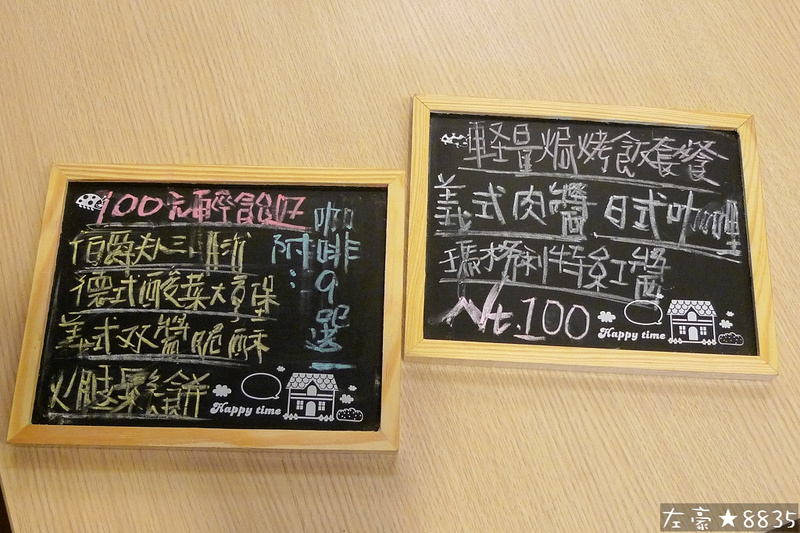 100元輕食吃
伯爵夫三明治
德式酸菜大亨堡
義式双醬脆酥
火腿鬆餅
附咖啡:9選一
Happy time
軽量焗烤飯套餐
義式肉醬 日式咖哩
瑪格利特紅醬
Nt.100
Happy time
左豪★8835